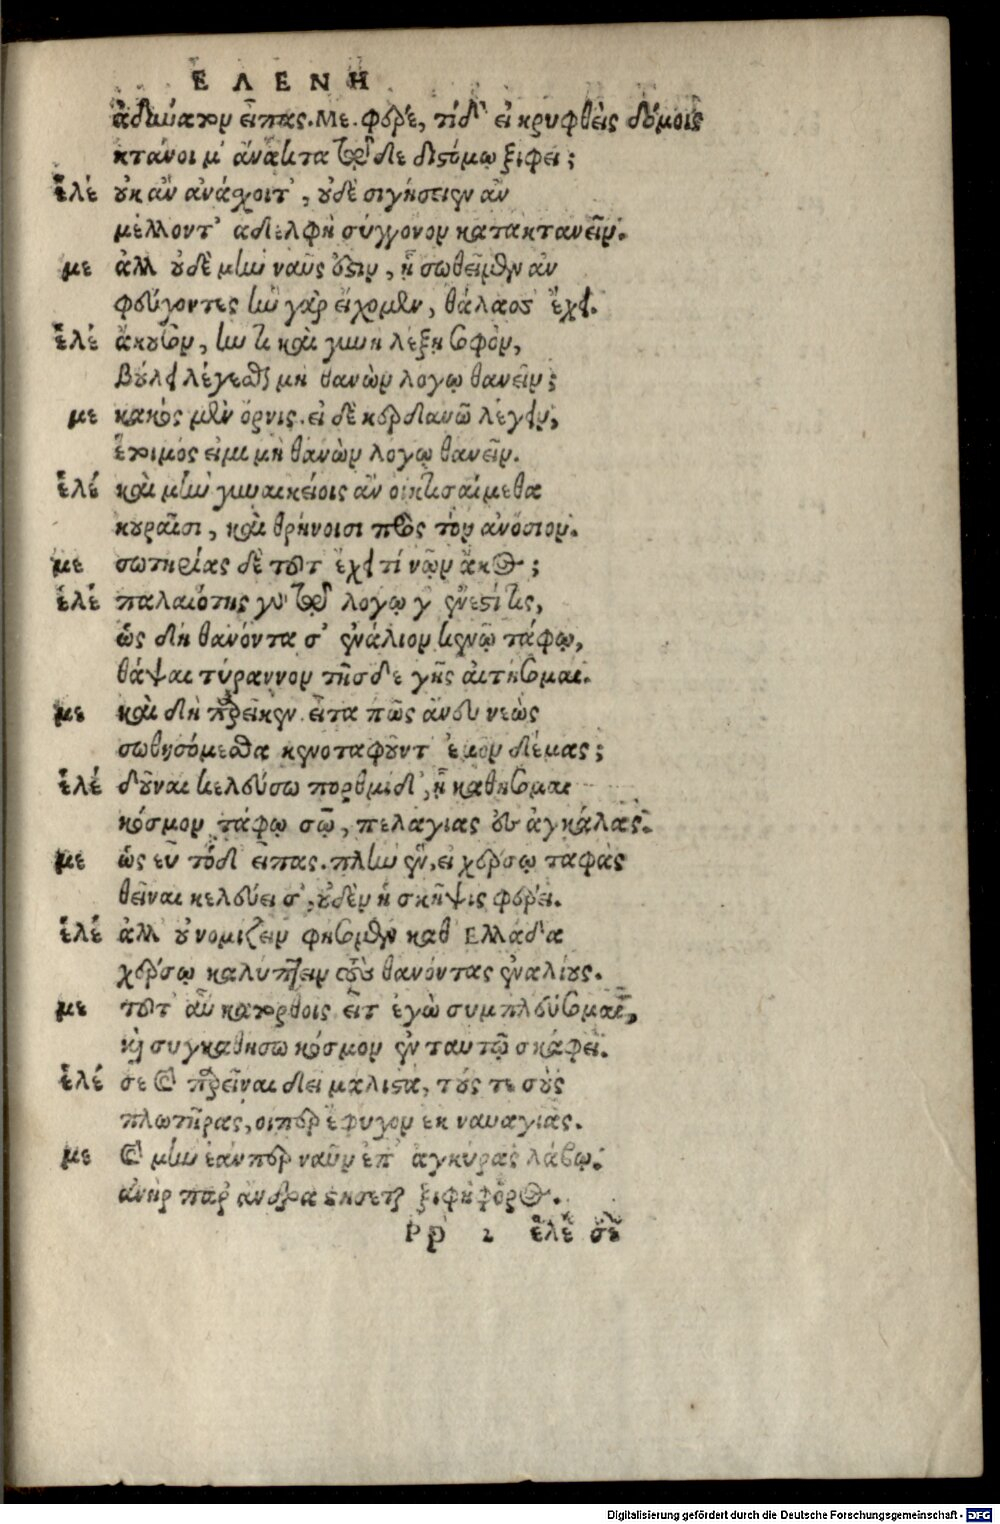 ΕΛΕΝΗ
ἀδιώατον εἶπας. Με. φέρε, τί δ' εἰ κρυφθεὶς δόμοις
κτάνοιμ' ἄνακτα τῷδε διστόμῳ ξιφει;
ἑλέ οὐκ ἂν ἀνάχοιτ', οὐδὲ σιγήσειεν ἂν
μέλλοντ' ἀδελφὴ σύγγονον κατακτανεῖν.
με ἀλλ οὐδὲ μὴν ναῦς ἔστιν, ᾗ σωθεῖμεν ἂν
φεύγοντες ἣν γὰρ εἴχομεν, θάλασσ' ἔχει.
ἑλέ ἄκουσον, ἤν τι καὶ γυνὴ λέξῃ σοφόν,
βούλει λέγεσθαι μὴ θανὼν λογῳ θανεῖν;
με κακὸς μὲν ὄρνις. εἰ δὲ κερδανῶ λέγειν,
ἕτοιμός εἰμι μὴ θανὼν λογῳ θανεῖν.
ἑλέ καὶ μὴν γυναικείοις ἂν οἰκτισαίμεθα
κουραῖσι, καὶ θρήνοισι πρὸς τὸν ἀνόσιον.
με σωτηρίας δὲ τοῦτ' ἔχει τί νῷν ἄκος;
ἑλέ παλαιότης γὰρ τῷ λογῳ γ' ἔνεστί τις,
ὡς δὴ θανόντα σ' ἐνάλιον κενῷ τάφῳ,
θάψαι τύραννον τῆσδε γῆς αἰτήσομαι.
με καὶ δὴ παρεῖκεν. εἶτα πῶς ἄνευ νεὼς
σωθησόμεσθα κενοταφοῦντ' ἐμὸν δέμας;
ἑλέ δοῦναι κελεύσω πορθμίδ', ᾗ καθήσομαι
κόσμον τάφῳ σῷ, πελαγίας ἐς ἀγκάλας.
με ὡς εὖ τόδ' εἶπας. πλὴν ἕν, εἰ χέρσῳ ταφὰς
θεῖναι κελεύει σ', οὐδὲν ἡ σκῆψις φέρει.
ἑλέ ἀλλ οὐ νομίζειν φήσομεν καθ Ελλάδα
χέρσῳ καλύπτειν τοὺς θανόντας ἐναλίους.
με τοῦτ' αὖ κατορθοῖς εἶτ' ἐγὼ συμπλεύσομαι,
καὶ συγκαθήσω κόσμον ἐν ταυτῷ σκάφει.
ἑλέ σὲ καὶ παρεῖναι δεῖ μαλιστα, τούς τε σοὺς
πλωτῆρας, οἵπερ ἔφυγον ἐκ ναυαγίας.
με καὶ μὴν ἐάνπερ ναῦν ἐπ' ἀγκύρας λάβω.
ἀνὴρ παρ' ἄνδρα στήσεται ξιφηφόρος.
Ρρ 2 ἑλέ σὲ
Digitalisierung gefördert durch die Deutsche Forschungsgemeinschaft - DFG